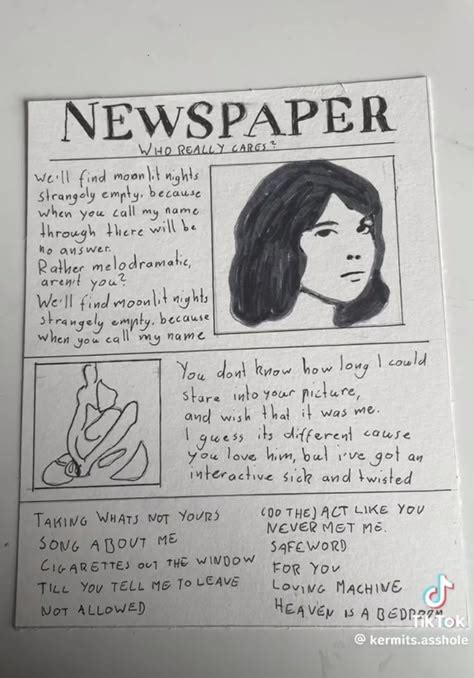 NEWSPAPER
WHO REALLY CARES?
We'll find moonlit nights
strangely empty, because
when you call my name
through there will be
no answer.
Rather melodramatic,
aren't you?
We'll find moonlit nights
strangely empty, because
when you call my name
You dont know how long I could
stare into your picture,
and wish that it was me.
I guess its different cause
you love him, but i've got an
interactive sick and twisted
TAKING WHATS NOT YOURS
SONG ABOUT ME
CIGARETTES OUT THE WINDOW
TILL YOU TELL ME TO LEAVE
NOT ALLOWED
(DO THE) ACT LIKE YOU
NEVER MET ME.
SAFEWORD
FOR YOU
LOVING MACHINE
HEAVEN IS A BEDROOM
TikTok
@ kermits.asshole